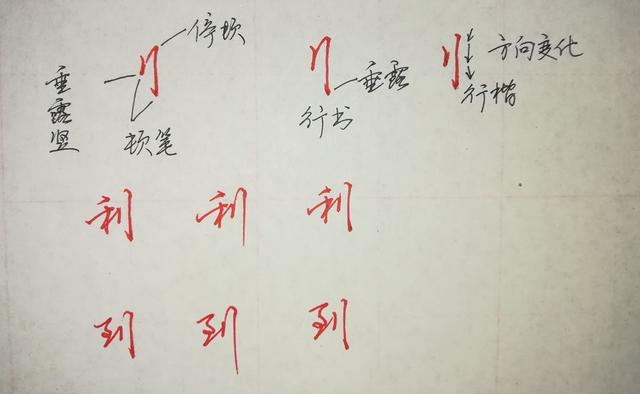 停
垂露竖
刂
顿笔
刂
垂露
行书
刂
方向变化
行楷
利 利 利
到 到 到